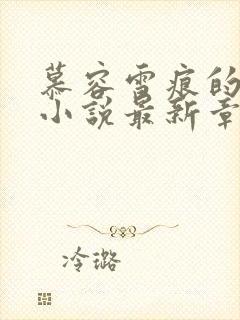 慕容雪痕的
小说最新章
冷璐